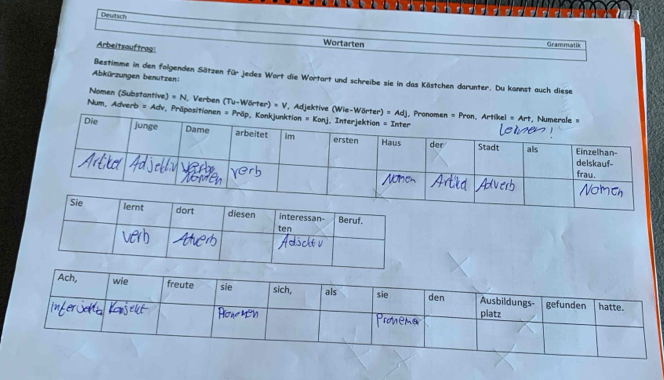 Deutsch
Wortarten
Grammatik
Arbeitsauftrag:
Bestimme in den folgenden Sätzen für jedes Wort die Wortart und schreibe sie in das Kästchen darunter. Du kannst auch diese
Abkürzungen benutzen:
Nomen (Substantive) = N, Verben (Tu-Wörter) = V, Adjektive (Wie-Wörter) = Adj, Pronomen = Pron, Artikel = Art, Numerale =
Num, Adverb = Adv, Präpositionen = Präp, Konjunktion = Konj, Interjektion = Inter
lernen!
Die junge Dame arbeitet im ersten Haus der Stadt als Einzelhan-
delskauf-
frau.
Artikel Adjektiv Verb Nomen Artikel Adverb Nomen
Nomen
Sie lernt dort diesen interessan-
ten Beruf.
Verb Adverb Adjektiv
Ach, wie freute sie sich, als sie den Ausbildungs-
platz gefunden hatte.
Pronomen Pronomen